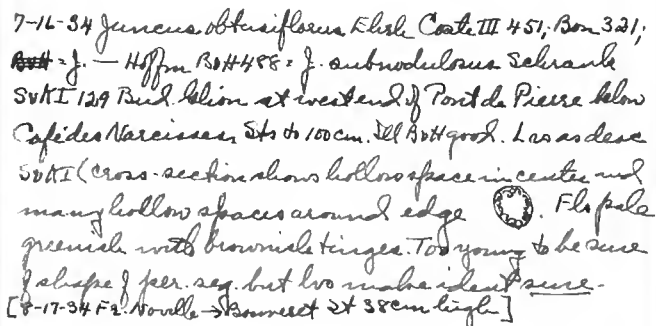 7-16-34 Juncus obtusiflorus Ehrh Coste III 451; Bon 321;
= J. — Hoffm B&H 488 = J. subnodulosus Schrank
SvKI 129 Bud. Glion at west end of Pont de Pierre below
Café des Narcisses. Sts to 100cm. Ill B&H good. Lvs as desc
SvKI (cross-section shows hollow space in center and
many hollow spaces around edge . Fls pale
greenish with brownish tinges. Too young to be sure
of shape of per. seg. but lvs make ident sure.
[8-17-34 F2. Noville → Bouveret st 38cm high]